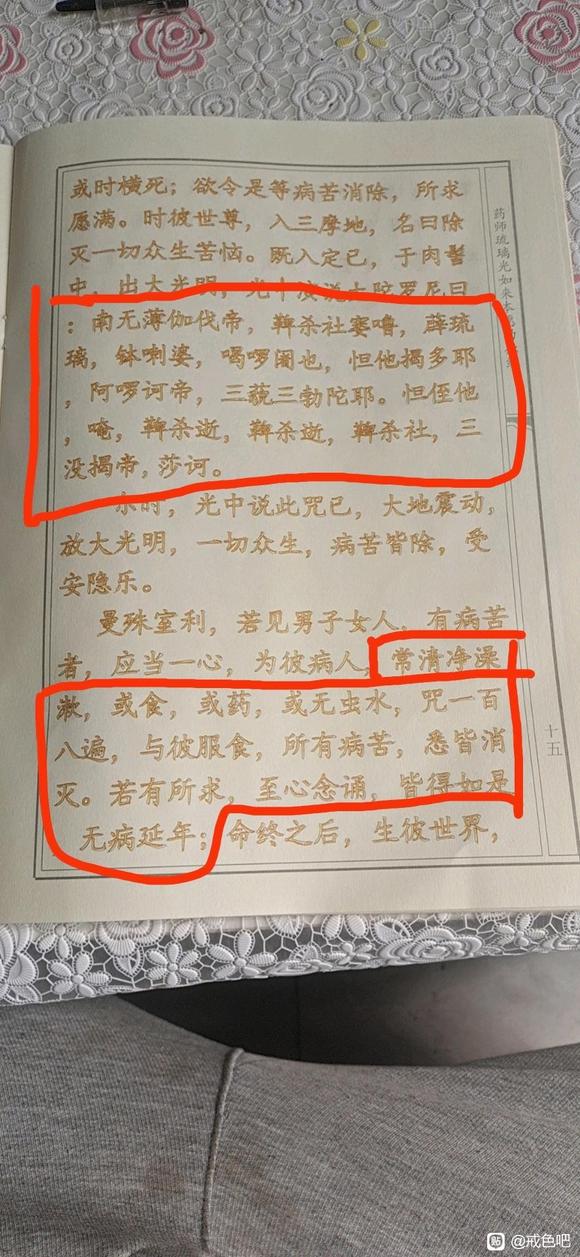 或时横死；欲令是等病苦消除，所求
愿满。时彼世尊，入三摩地，名曰除
灭一切众生苦恼。既入定已，于肉髻
中，出大光明，光中演说大陀罗尼曰
：南无薄伽伐帝，鞞杀社窭噜，薜琉
璃，钵喇婆，喝啰阇也，怛他揭多耶
，阿啰诃帝，三藐三勃陀耶。怛侄他
，唵，鞞杀逝，鞞杀逝，鞞杀社，三
没揭帝，莎诃。
尔时，光中说此咒已，大地震动，
放大光明，一切众生，病苦皆除，受
安隐乐。
曼殊室利，若见男子女人，有病苦
者，应当一心，为彼病人，常清净澡
漱，或食，或药，或无虫水，咒一百
八遍，与彼服食，所有病苦，悉皆消
灭。若有所求，至心念诵，皆得如是
无病延年；命终之后，生彼世界，
药师琉璃光如来本
十五
贴 @戒色吧